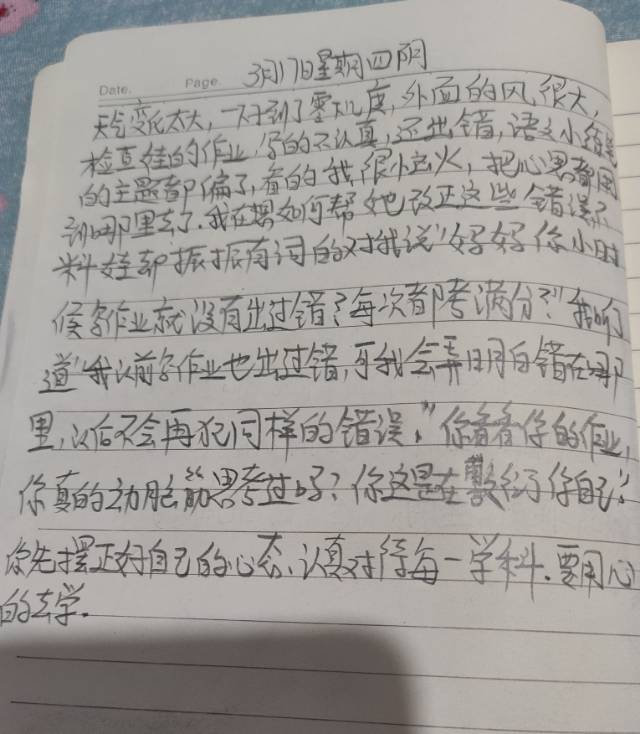 Date. Page. 3月17日星期四阴
天气变化太大,一下子到了零下几度,外面的风很大,
检查娃的作业,写的不认真,还出错,语文小练笔
的主题都偏了,看的我很小运火,把心思都用
到哪里去了.我在想如何帮她改正这些错误?
料娃却振振有词的对我说"妈妈你小时
候写作业就没有出过错?每次都考满分?"我听了
道"我以前写作业也出过错,可我会弄明白错在哪
里,以后不会再犯同样的错误,""你看看你的作业,
你真的动脑筋思考过吗?你这是在敷衍你自己"
你先摆正好自己的心态,认真对待每一学科.要用心
的去学.